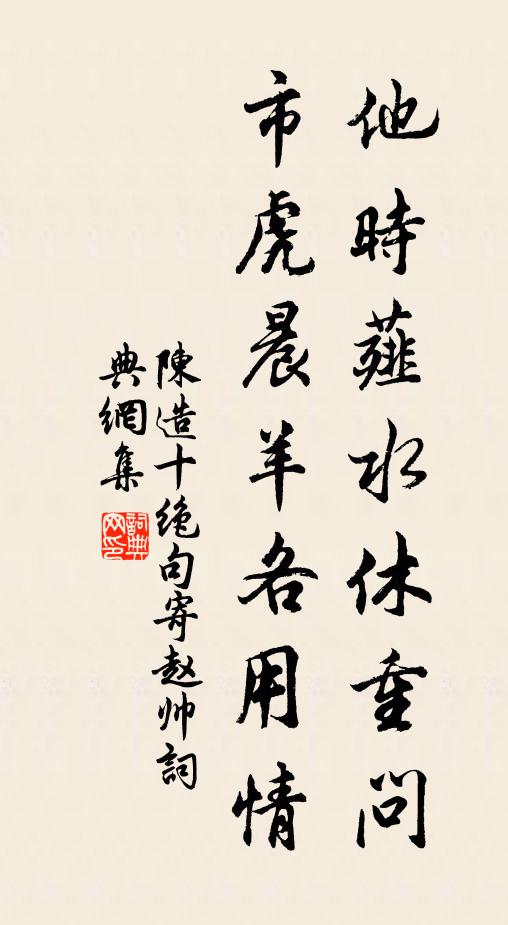 他時薤水休重問
市虎晨羊各用情
陳造十絶句寄赵帅詞
典網集
詞典
网印